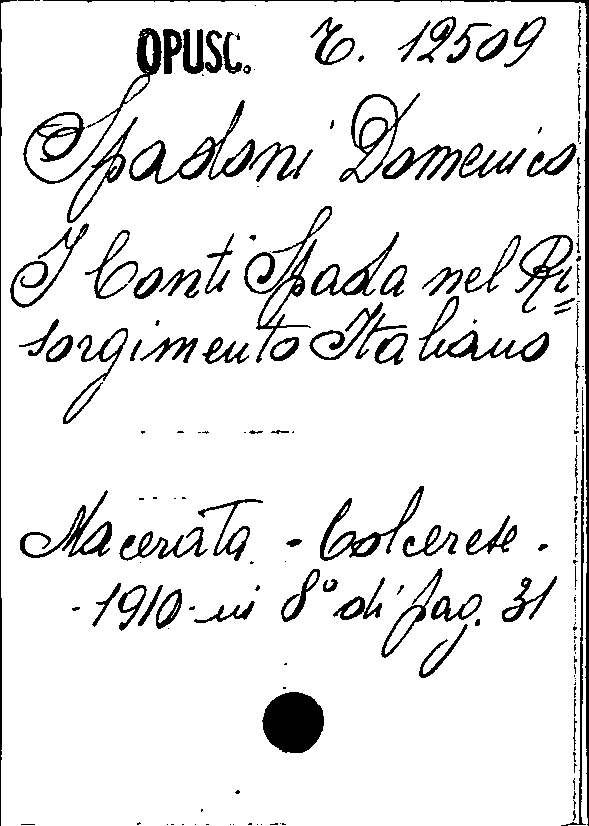 OPUSC. T. 12509
Spadoni Domenico
I Conti Spada nel Ri=
sorgimento Italiano
Macerata - Colcerese -
- 1910 - in 8° di pag. 31